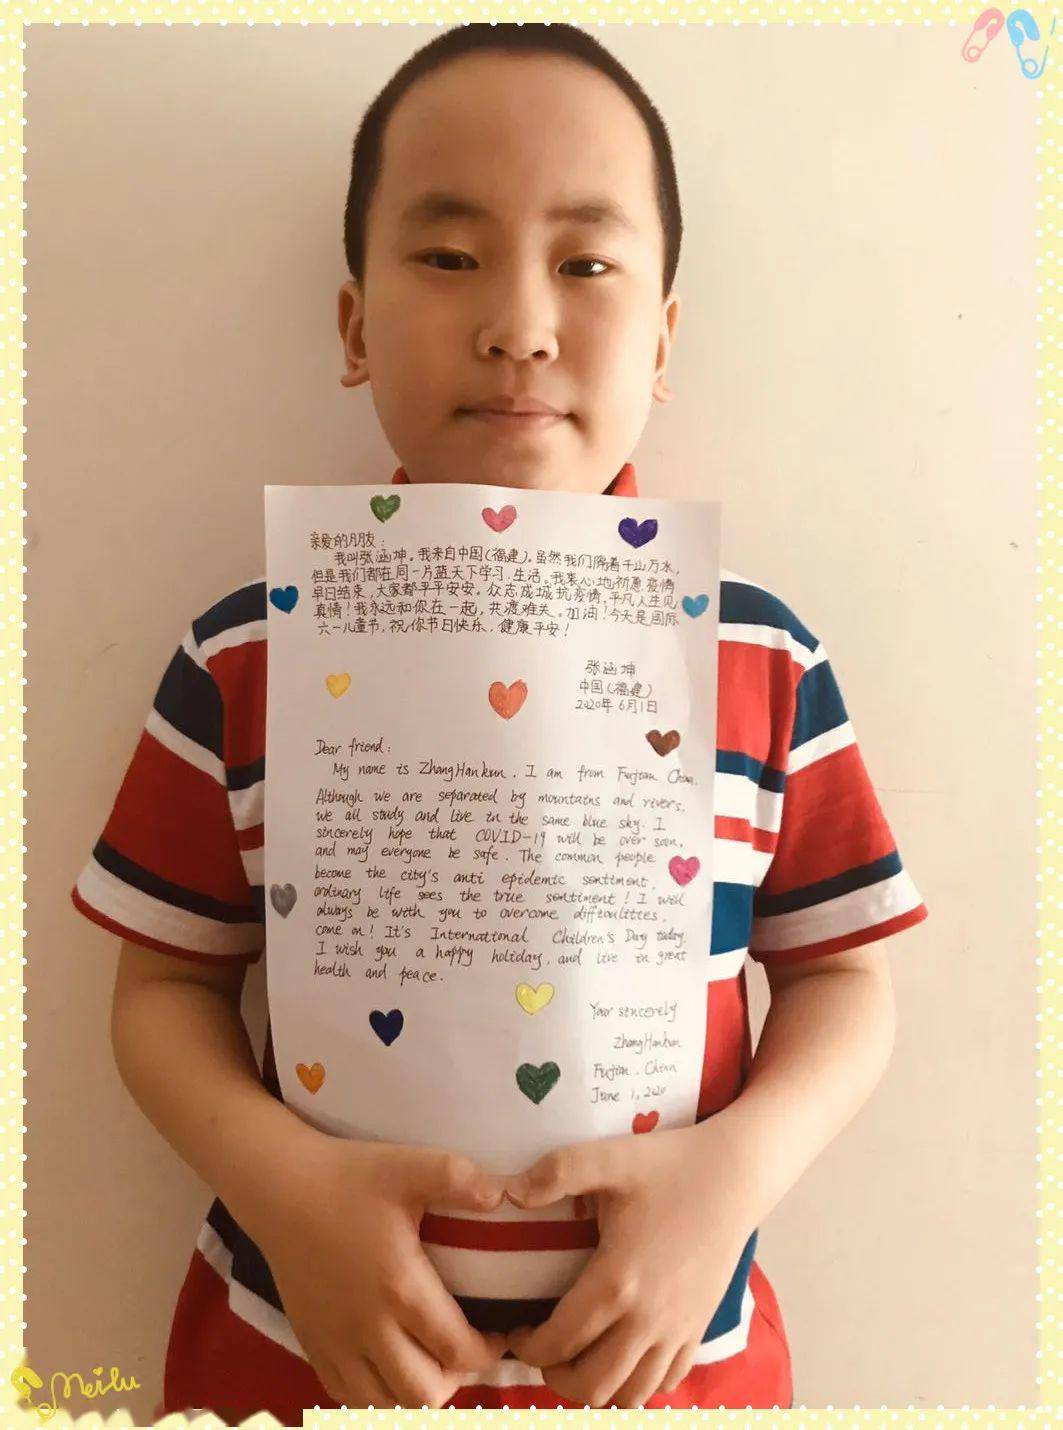 亲爱的朋友：
我叫张涵坤。我来自中国（福建）。虽然我们隔着千山万水，
但是我们都在同一片蓝天下学习.生活。我衷心地祈愿疫情
早日结束，大家都平平安安。众志成城抗疫情，平凡人生见
真情！我永远和你在一起，共渡难关。加油！今天是国际
六一儿童节，祝你节日快乐，健康平安！
张涵坤
中国（福建）
2020年6月1日
Dear friend:
My name is ZhangHankun. I am from Fujian China.
Although we are separated by mountains and rivers,
we all study and live in the same blue sky. I
sincerely hope that COVID-19 will be over soon,
and may everyone be safe. The common people
become the city's anti epidemic sentiment,
ordinary life sees the true sentiment! I will
always be with you to overcome difficulities.
come on! It's International Children's Day today,
I wish you a happy holiday, and live in great
health and peace.
Your sincerely
ZhangHankun
Fujian, China
June 1, 2020
Meilu